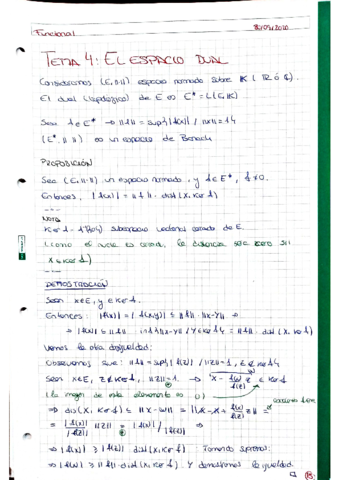 Funcional
TEMA 4: EL ESPACIO DUAL
Consideramos (E, ||·||) espacio normado sobre K ( R ó C).
El dual (topológico) de E es E* = L(E, K)
Sea f ∈ E* → ||f|| = sup{|f(x)| / ||x|| = 1}
(E*, || ||) es un espacio de Banach
PROPOSICIÓN
Sea (E, ||·||) un espacio normado, y f ∈ E*, f ≠ 0.
Entonces, |f(x)| = ||f|| · dist (x, Ker f)
NOTA
Ker f = subespacio vectorial cerrado de E.
(como el núcleo es cerrado, la distancia será cero si
x ∈ Ker f)
DEMOSTRACIÓN
Sean x ∈ E, y ∈ Ker f.
Entonces: |f(x)| = |f(x-y)| ≤ ||f|| · ||x-y|| ⇒
⇒ |f(x)| ≤ ||f|| · inf{||x-y|| / y ∈ Ker f} = ||f|| · dist (x, Ker f)
Veamos la otra desigualdad:
Observamos que: ||f|| = sup{|f(z)| / ||z|| = 1, z ∉ Ker f}
Sean x ∈ E, z ∉ Ker f, ||z|| = 1. → x - f(x)/f(z) z ∈ Ker f
(la imagen de este elemento es 0)
⇒ dist (x, Ker f) ≤ ||x - w|| = ||x - x + f(x)/f(z) z|| =
= |f(x)|/|f(z)| ||z|| = |f(x)| / |f(z)| ⇒
⇒ |f(x)| ≥ |f(z)| dist(x, Ker f) Tomando supremos:
⇒ |f(x)| ≥ ||f|| · dist(x, Ker f). Y demostramos la igualdad.